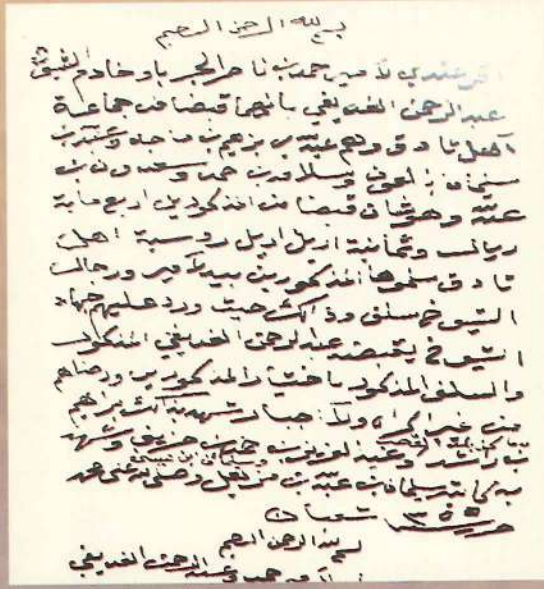 بسم الله الرحمن الرحيم
اقر عندي الامير حمد بن ناصر الجبر باو خادم الشيوخ
عبدالرحمن الغديفي بانهما قبضا من جماعة
آهل تادق وهم عبدالله بن برهيم بن ماجد وعبدالله بن
سليمان بن عون وسلامه بن حمد وسعدون بن
عبدالله وهوشان قبضا من المذكورين اربع ماية
ريالٍ وثمانية اريل اريل روسية اهل
تادق سلموها المذكورين بيد الامير ورجال
الشيوخ سلف وذالك حيث ورد عليهم جهاد
الشيوخ يقبضه عبدالرحمن الغديفي المذكور
والسلف المذكور باختيار المذكورين ورضاهم
من غير اكراه ولا اجبار شهد بذالك براهيم
بن رشد وعبدالعزيز بن حمد بن وشهد
به كاتبه سليمان بن عبدالله بن وصلى الله على محمد
شعبان
بسم الله الرحمن الرحيم
الامير حمد وعبدالرحمن الغديفي